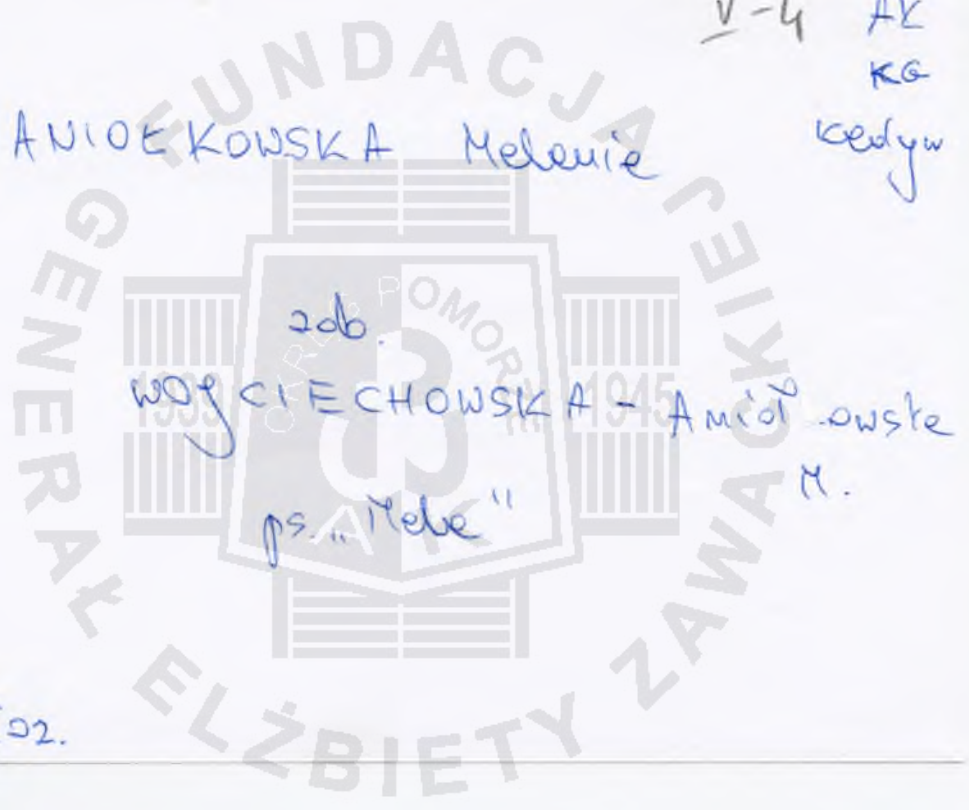 V-4 AK
KG
Kedyw
ANIOŁKOWSKA Melania
zob.
WOJCIECHOWSKA - Anioł owska
M.
ps. „Mela"
02.
FUNDACJA
GENERAŁ ELŻBIETY ZAWACKIEJ
ARCH. POMORA
1939 1945
AK